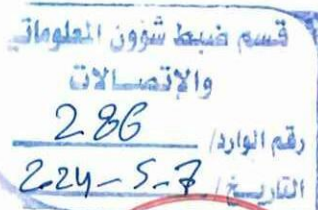 قسم ضبط شؤون المعلومات
والإتصالات
رقم الوارد/ 286
التاريخ / 2024-5-7